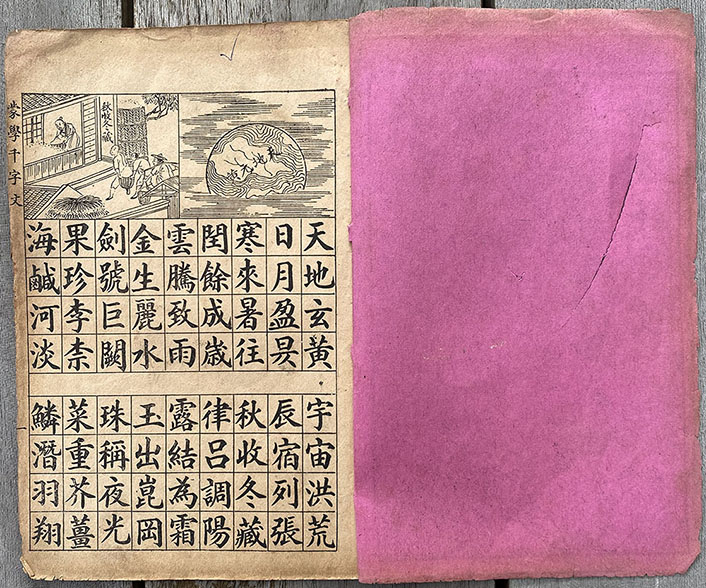 蒙學千字文
秋收冬藏
天地玄黃
宇宙洪荒
日月盈昃
辰宿列張
寒來暑往
秋收冬藏
閏餘成歳
律呂調陽
雲騰致雨
露結為霜
金生麗水
玉出崑岡
劍號巨闕
珠稱夜光
果珍李柰
菜重芥薑
海鹹河淡
鱗潛羽翔